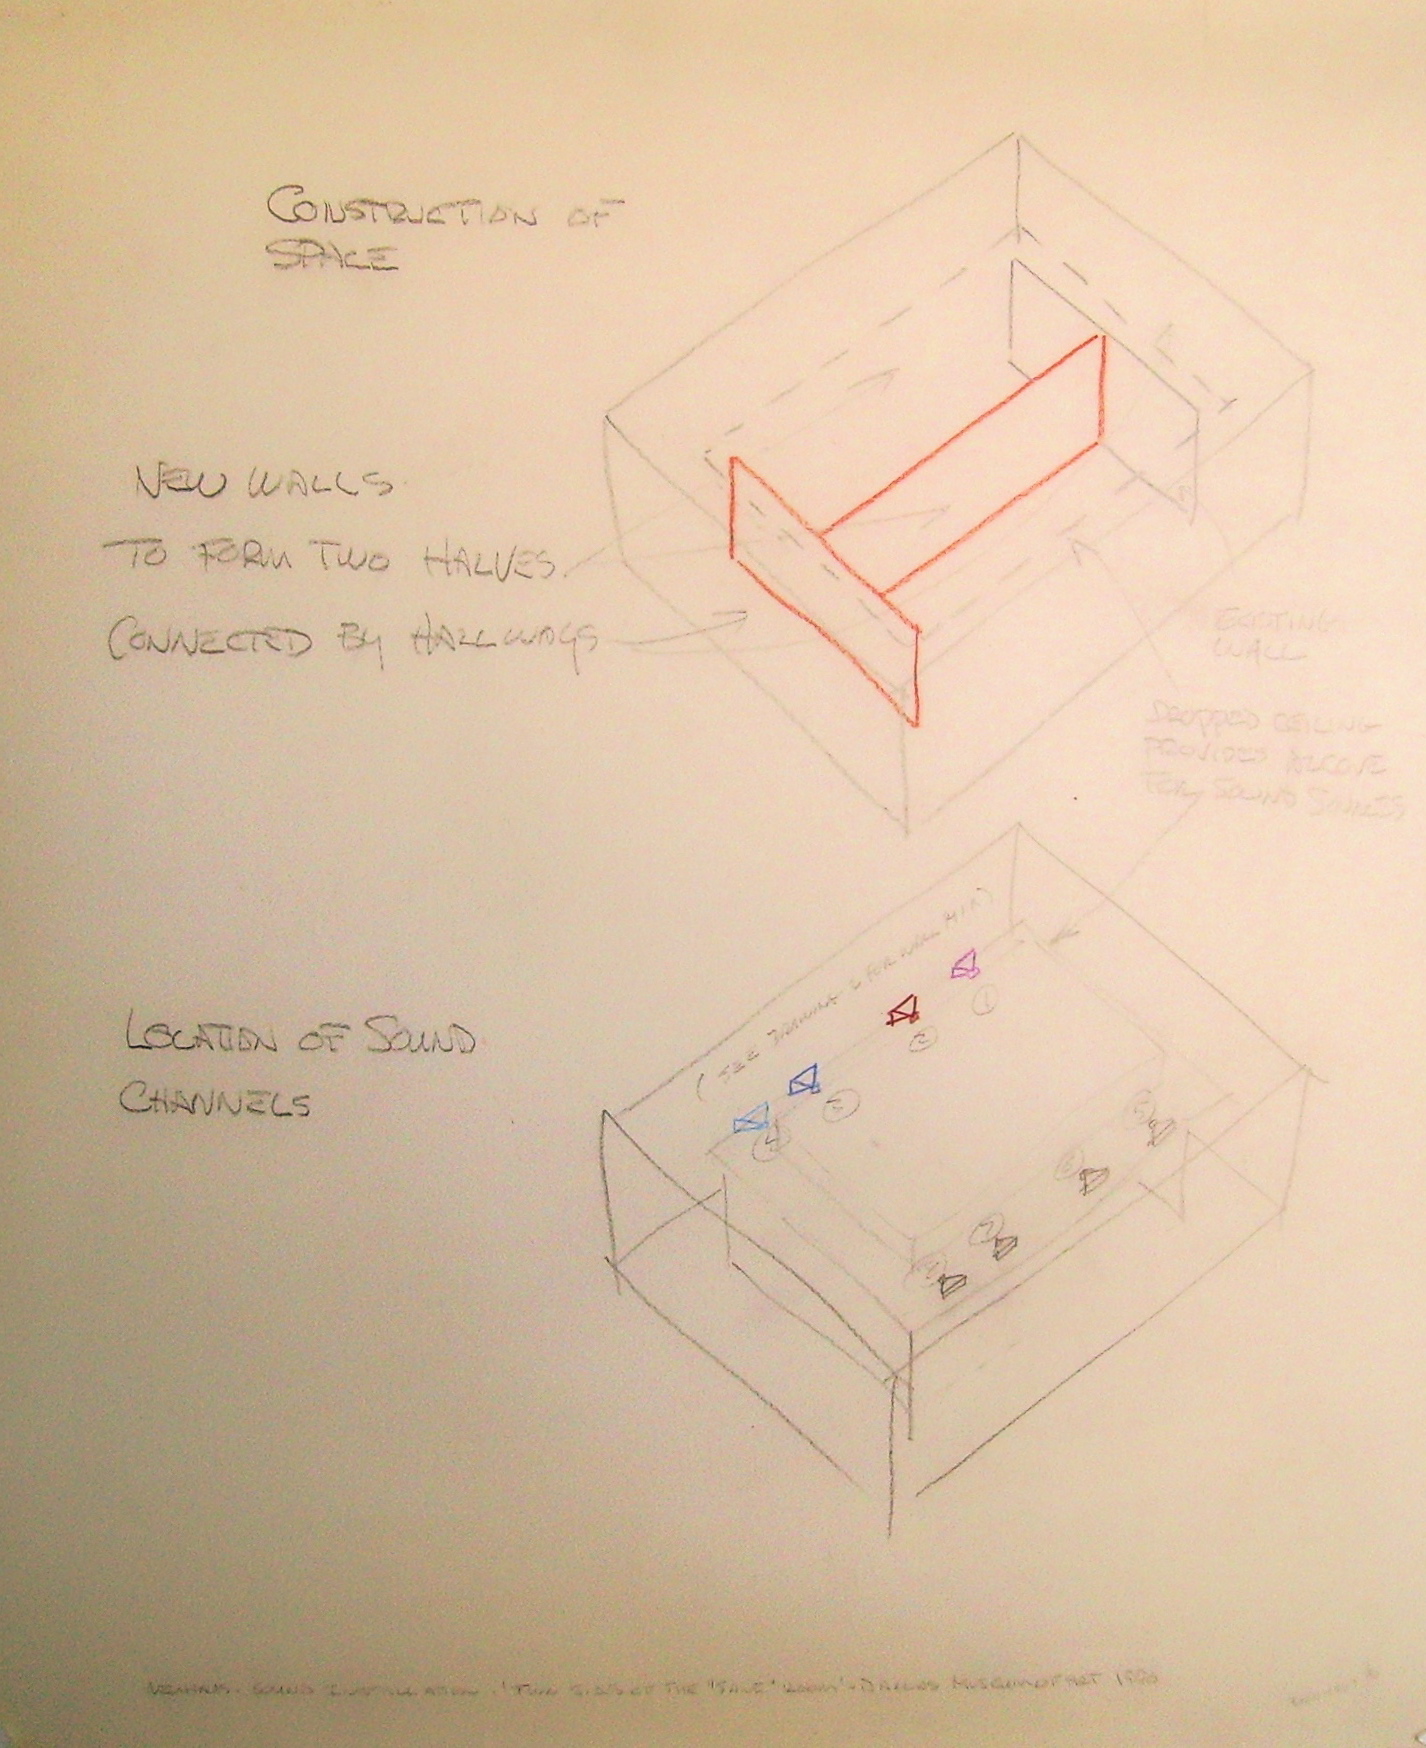 CONSTRUCTION OF
SPACE
NEW WALLS
TO FORM TWO HALVES
CONNECTED BY HALLWAYS
EXISTING
WALL
DROPPED CEILING
PROVIDES ALCOVE
FOR SOUND SOURCES
(SEE DRAWING FOR WALL
1
2
3
4
5
6
7
LOCATION OF SOUND
CHANNELS
SOUND INSTALLATION 'TWO SIDES OF THE "SAME" ROOM' - DALLAS MUSEUM OF ART 1990